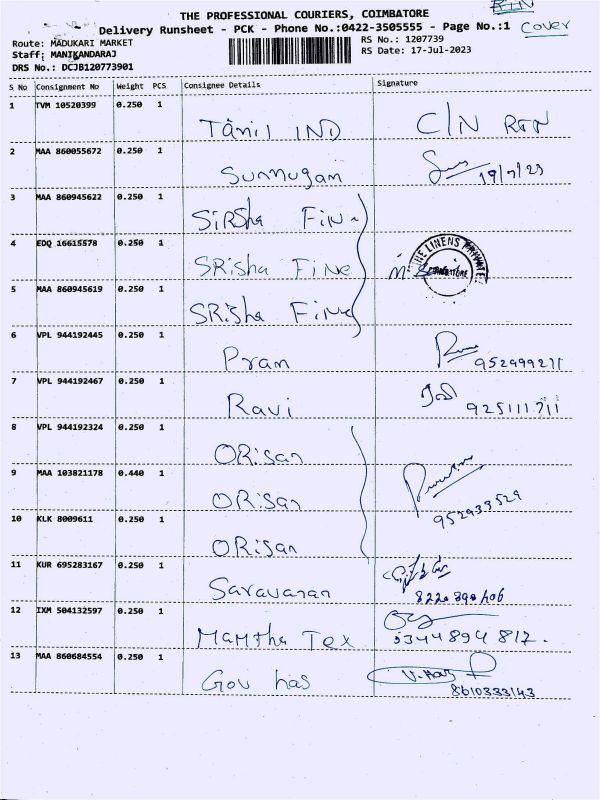 RTN
THE PROFESSIONAL COURIERS, COIMBATORE
Delivery Runsheet - PCK - Phone No.:0422-3505555 - Page No.:1 Cover
Route: MADUKARI MARKET
Staff: MANIKANDARAJ
DRS No.: DCJB120773901
RS No.: 1207739
RS Date: 17-Jul-2023
S No Consignment No Weight PCS Consignee Details Signature
1 TVM 10520399 0.250 1 Tamil IND C/N RTN
2 MAA 860055672 0.250 1 Sunmugam 19/7/23
3 MAA 860945622 0.250 1 SiRSha FiNe
4 EDQ 16615578 0.250 1 SRisha FiNe
5 MAA 860945619 0.250 1 SRisha FiNe
6 VPL 944192445 0.250 1 Pram 952999211
7 VPL 944192467 0.250 1 Ravi ரவி 925111711
8 VPL 944192324 0.250 1 ORisan
9 MAA 103821178 0.440 1 ORisan 952933529
10 KLK 8009611 0.250 1 ORisan
11 KUR 695283167 0.250 1 Saravanan 8220390406
12 IXM 504132597 0.250 1 Mamtha Tex 9344894817.
13 MAA 860684554 0.250 1 Gov has V.Has 8610333143